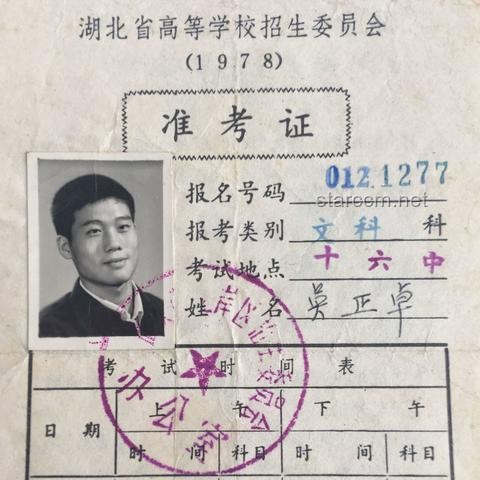 湖北省高等学校招生委员会
(1978)
准考证
报名号码 0121277
stareem.net
报考类别 文科 科
考试地点 十六中
姓名 吴正卓
考试时间表
日期 上午 下午
时间 科目 时间 科目
办公室